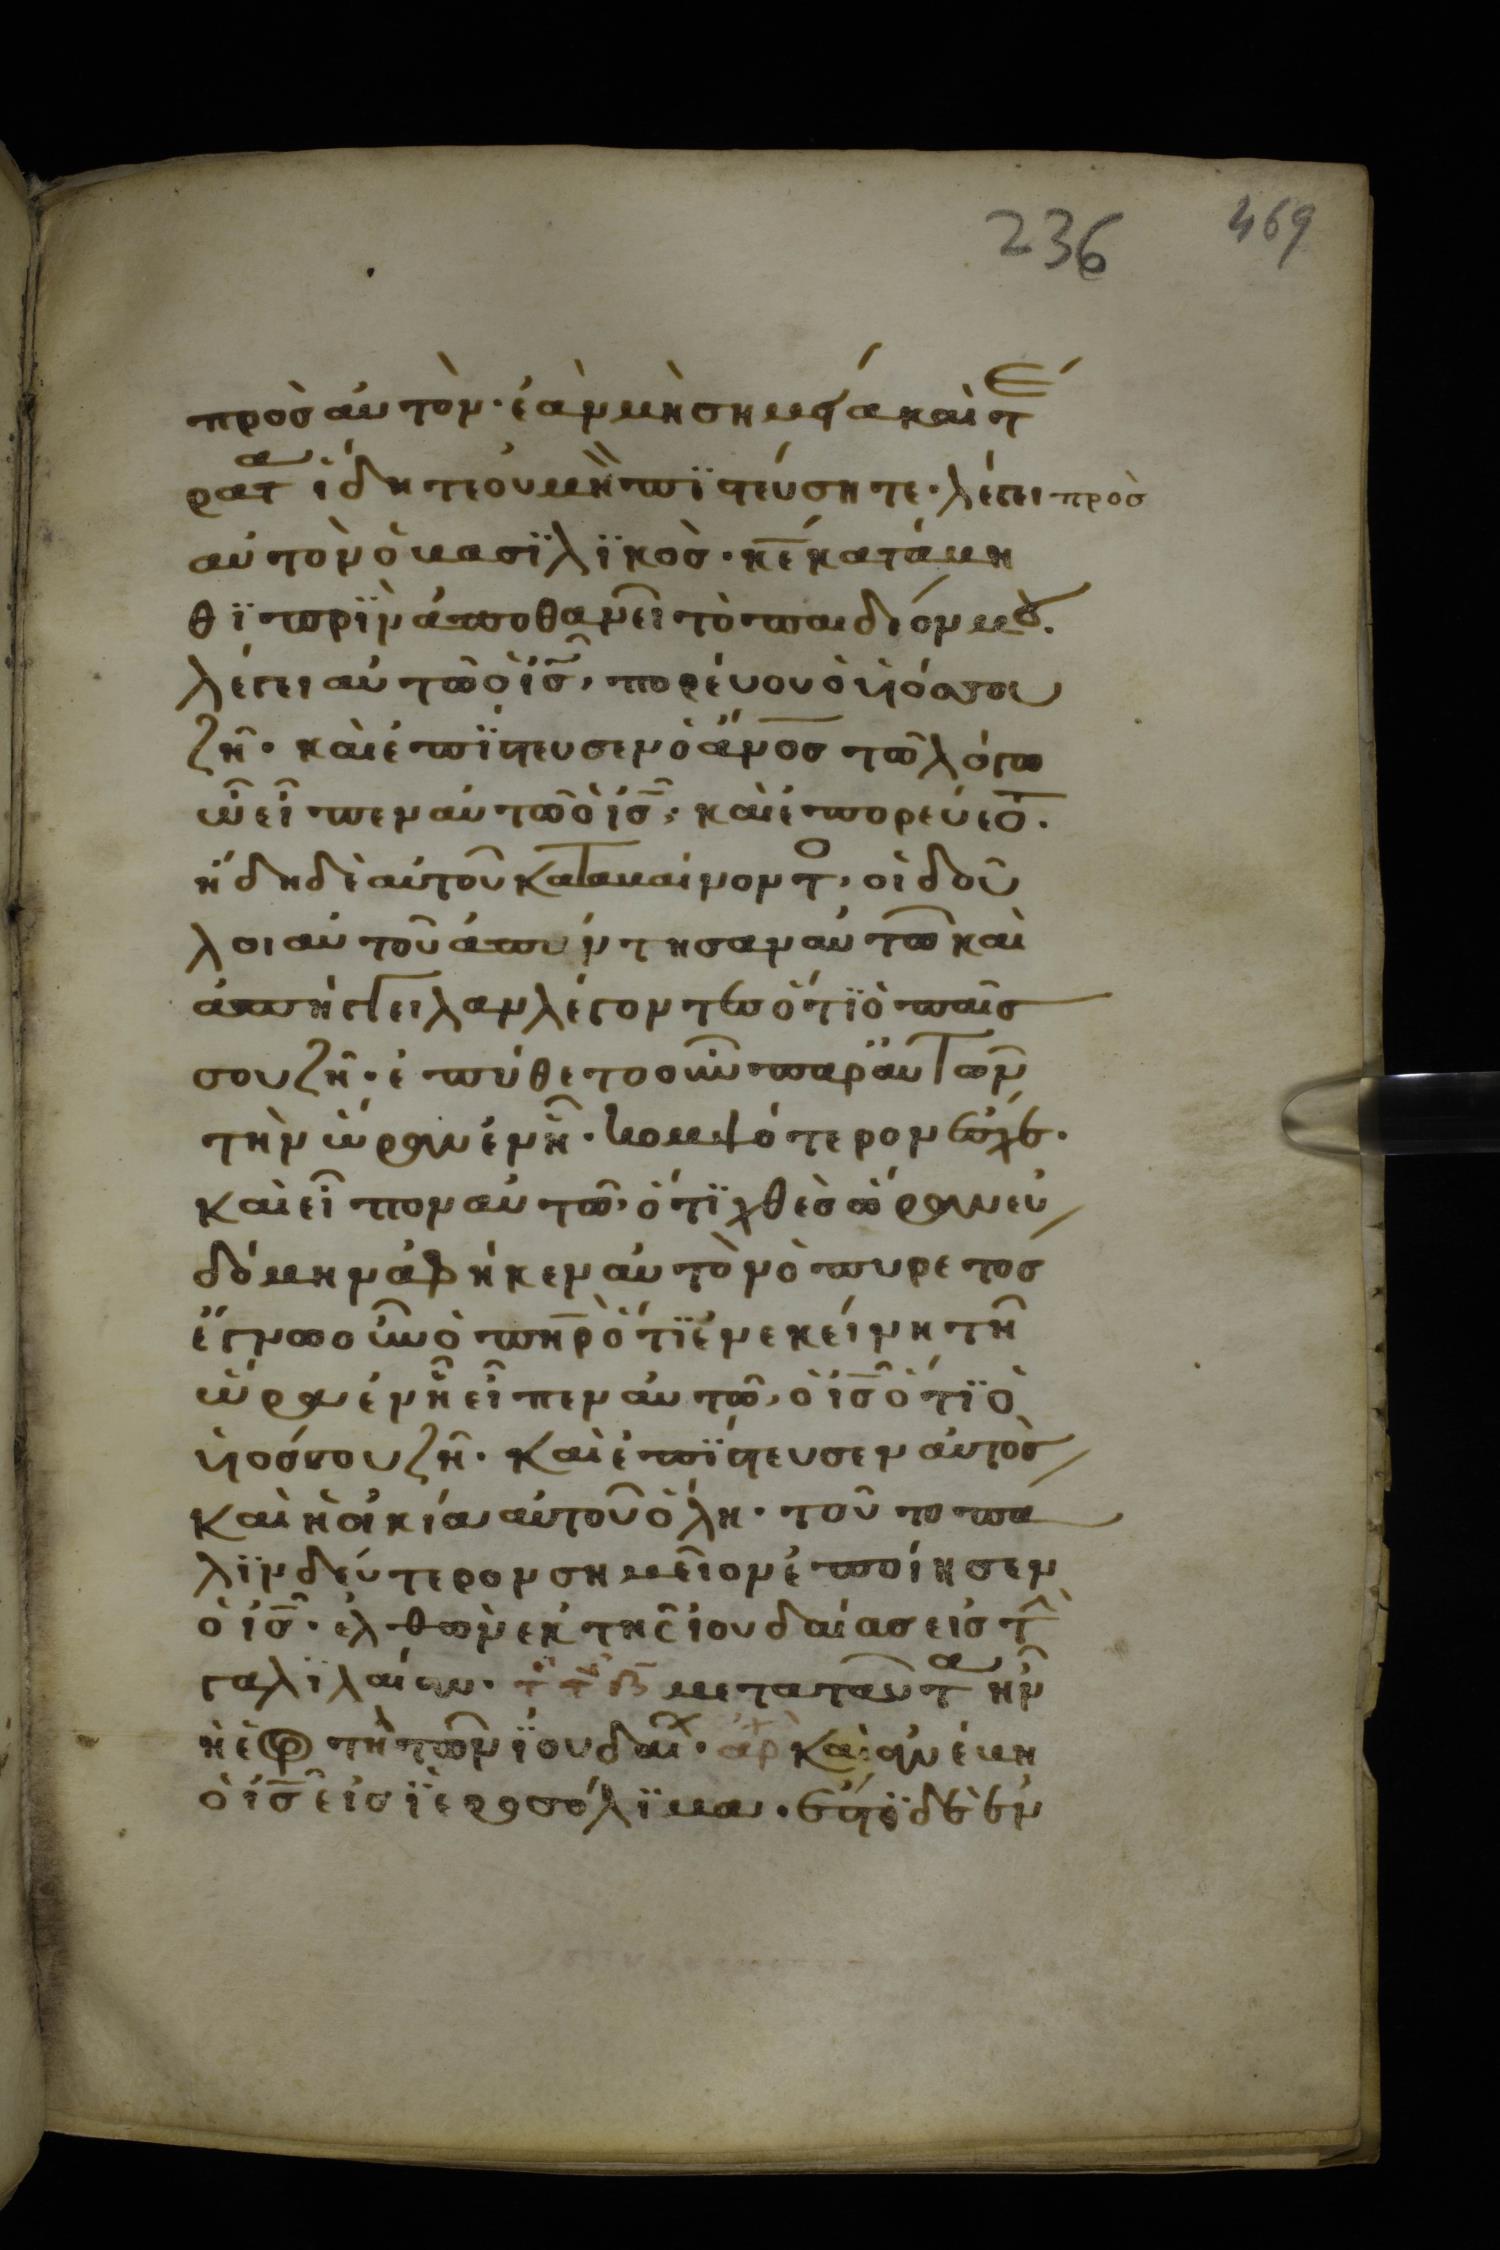 236 469
πρὸσ αὐτὸν· ἐὰν μὴ σημεῖα καὶ τέ
ρατα ἴδητε οὐ μὴ πϊστεύσητε· λέγει πρὸσ
αὐτὸν ὁ βασϊλϊκὸσ· κ̅ε̅ κατάβη
θϊ πρϊν ἀποθανεῖν τὸ παιδίον μου.
λέγει αὐτῶ ὁ ι̅σ̅, πορεύου ὁ υἱόσ σου
ζῆ· καὶ ἐπϊστευσεν ὁ α̅ν̅ο̅σ̅ τῶ λόγω
ὧ εἶπεν αὐτῶ ὁ ι̅σ̅, καὶ ἐπορεύετο.
ἤδη δὲ αὐτοῦ καταβαίνοντοσ, οἱ δοῦ
λοι αὐτοῦ ἀπήντησαν αὐτῶ καὶ
ἀπήγγειλαν λέγοντεσ ὅτϊ ὁ παῖσ
σου ζῆ· ἐπύθετο οὖν παρ αὐτῶν
τὴν ὥραν ἐν ἧ· κομψότερον ἔσχε·
καὶ εἶπον αὐτῶ, ὅτϊ χθὲσ ὥραν ἑυ
δόμην ἀφῆκεν αὐτὸν ὁ πυρετοσ
ἔγνω οὖν ὁ π̅η̅ρ̅ ὅτϊ ἐν ἐκείνη τῆ
ὥρα ἐν ἧ εἶπεν αὐτῶ, ὁ ι̅σ̅ ὅτϊ ὁ
υἱόσ σου ζῆ· καὶ ἐπϊστευσεν αὐτὸσ
καὶ ἡ οἰκία αὐτοῦ ὅλη· τοῦτο πα
λϊν δεύτερον σημεῖον ἐποίησεν
ὁ ι̅σ̅· ἐλθὼν ἐκ τῆσ ἰουδαίασ εἰσ τὴν
γαλϊλαίαν· μετα ταῦτα ἦν
ἡ ἑορτὴ τῶν ϊουδαί· ἀρχ καὶ ἀνέβη
ὁ ι̅σ̅ εἰσ ϊεροσόλϊμα· ἔστϊ δὲ ἐν